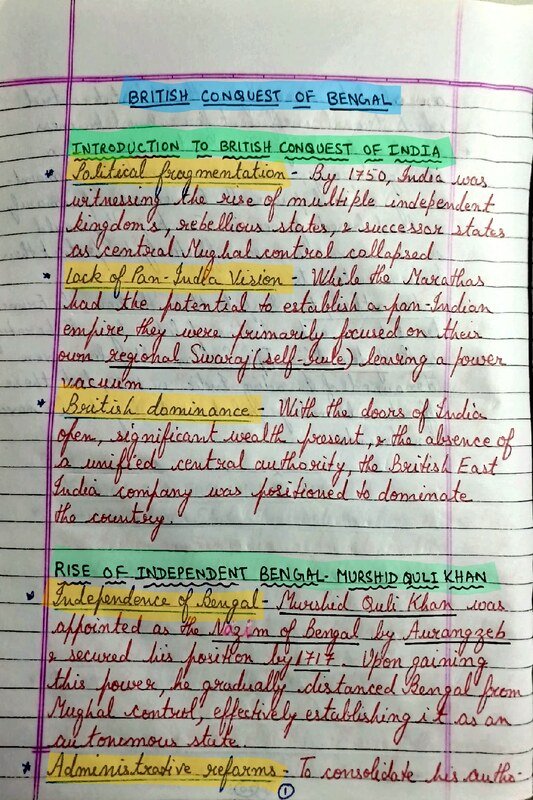 BRITISH CONQUEST OF BENGAL
INTRODUCTION TO BRITISH CONQUEST OF INDIA
* Political fragmentation - By 1750, India was
witnessing the rise of multiple independent
kingdom's, rebellious states, & successor states
as central Mughal control collapsed
* Lack of Pan-India Vision - While the Marathas
had the potential to establish a pan-Indian
empire they were primarily focused on their
own regional Swaraj (self-rule) leaving a power
vacuum
* British dominance - With the doors of India
open, significant wealth present, & the absence of
a unified central authority, the British East
India company was positioned to dominate
the country.
RISE OF INDEPENDENT BENGAL- MURSHID QULI KHAN
* Independence of Bengal - Murshid Quli Khan was
appointed as the Nazim of Bengal by Aurangzeb
& secured his position by 1717. Upon gaining
this power, he gradually distanced Bengal from
Mughal control, effectively establishing it as an
autonomous state.
* Administrative reforms - To consolidate his autho-
1